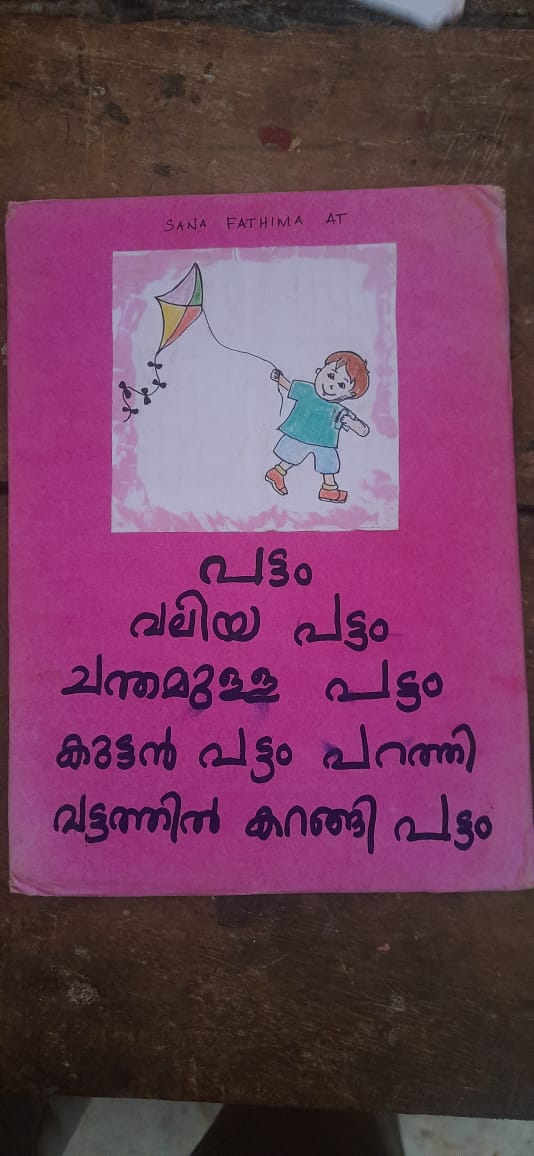 SANA FATHIMA AT
പട്ടം
വലിയ പട്ടം
ചന്തമുള്ള പട്ടം
കുട്ടൻ പട്ടം പറത്തി
വട്ടത്തിൽ കറങ്ങി പട്ടം